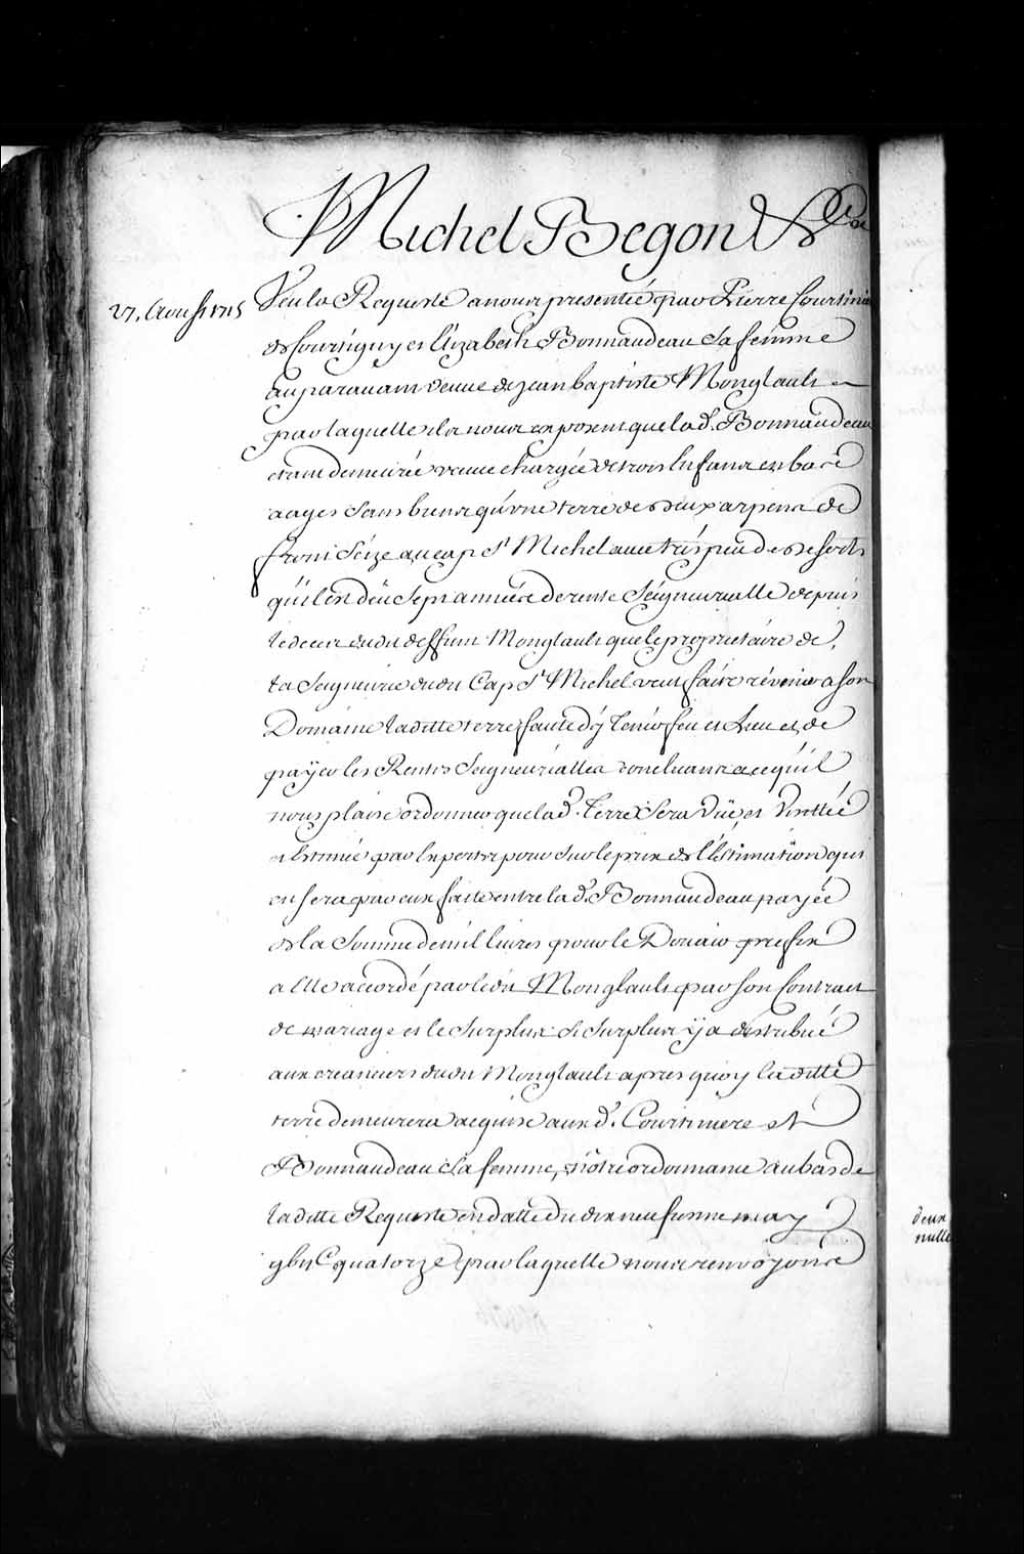 Michel Begon &c
27. Aoust 1715
Veu la Requeste a nous presentée par Pierre Courtiniere
de Courtigny et Elizabeth Bonnaudeau sa femme
auparavant veuve de Jean baptiste Monglault
par laquelle ils nous exposent que lad. Bonnaudeau
etant demeurée veuve chargée de trois Enfans en bas
aages sans biens qu'vne terre de deux arpens de
front Seize au cap St Michel avec trés peu de deserts
qu'il en deu Sept années de rente Seigneurialle depuis
le deces dudit deffunt Monglault que le proprietaire de
la Seigneurie dudit Cap St Michel veut faire réunir a son
Domaine laditte terre faute d'y tenir feu et Lieu et de
payer les Rentes Seigneurialles concluants a ce qu'il
nous plaise ordonner que lad. Terre Sera Vüe et Visittée
et Estimée par Experts pour sur le prix de l'Estimation qui
en sera par eux faite entre la d. Bonnaudeau payée
de la Somme de mil livres pour le Douaire prefix
a Elle accordé par led. Monglault par son Contract
de mariage et le Surplus Si Surplus ÿ a distribué
aux creanciers dudit Monglault apres quoy laditte
terre demeurera acquise aux d. Courtiniere et
Bonnaudeau sa femme, nôtre ordonnance au bas de
laditte Requeste en datte du dix neufieme may
gbijC quatorze par laquelle nous renvoyons
deux
nulle